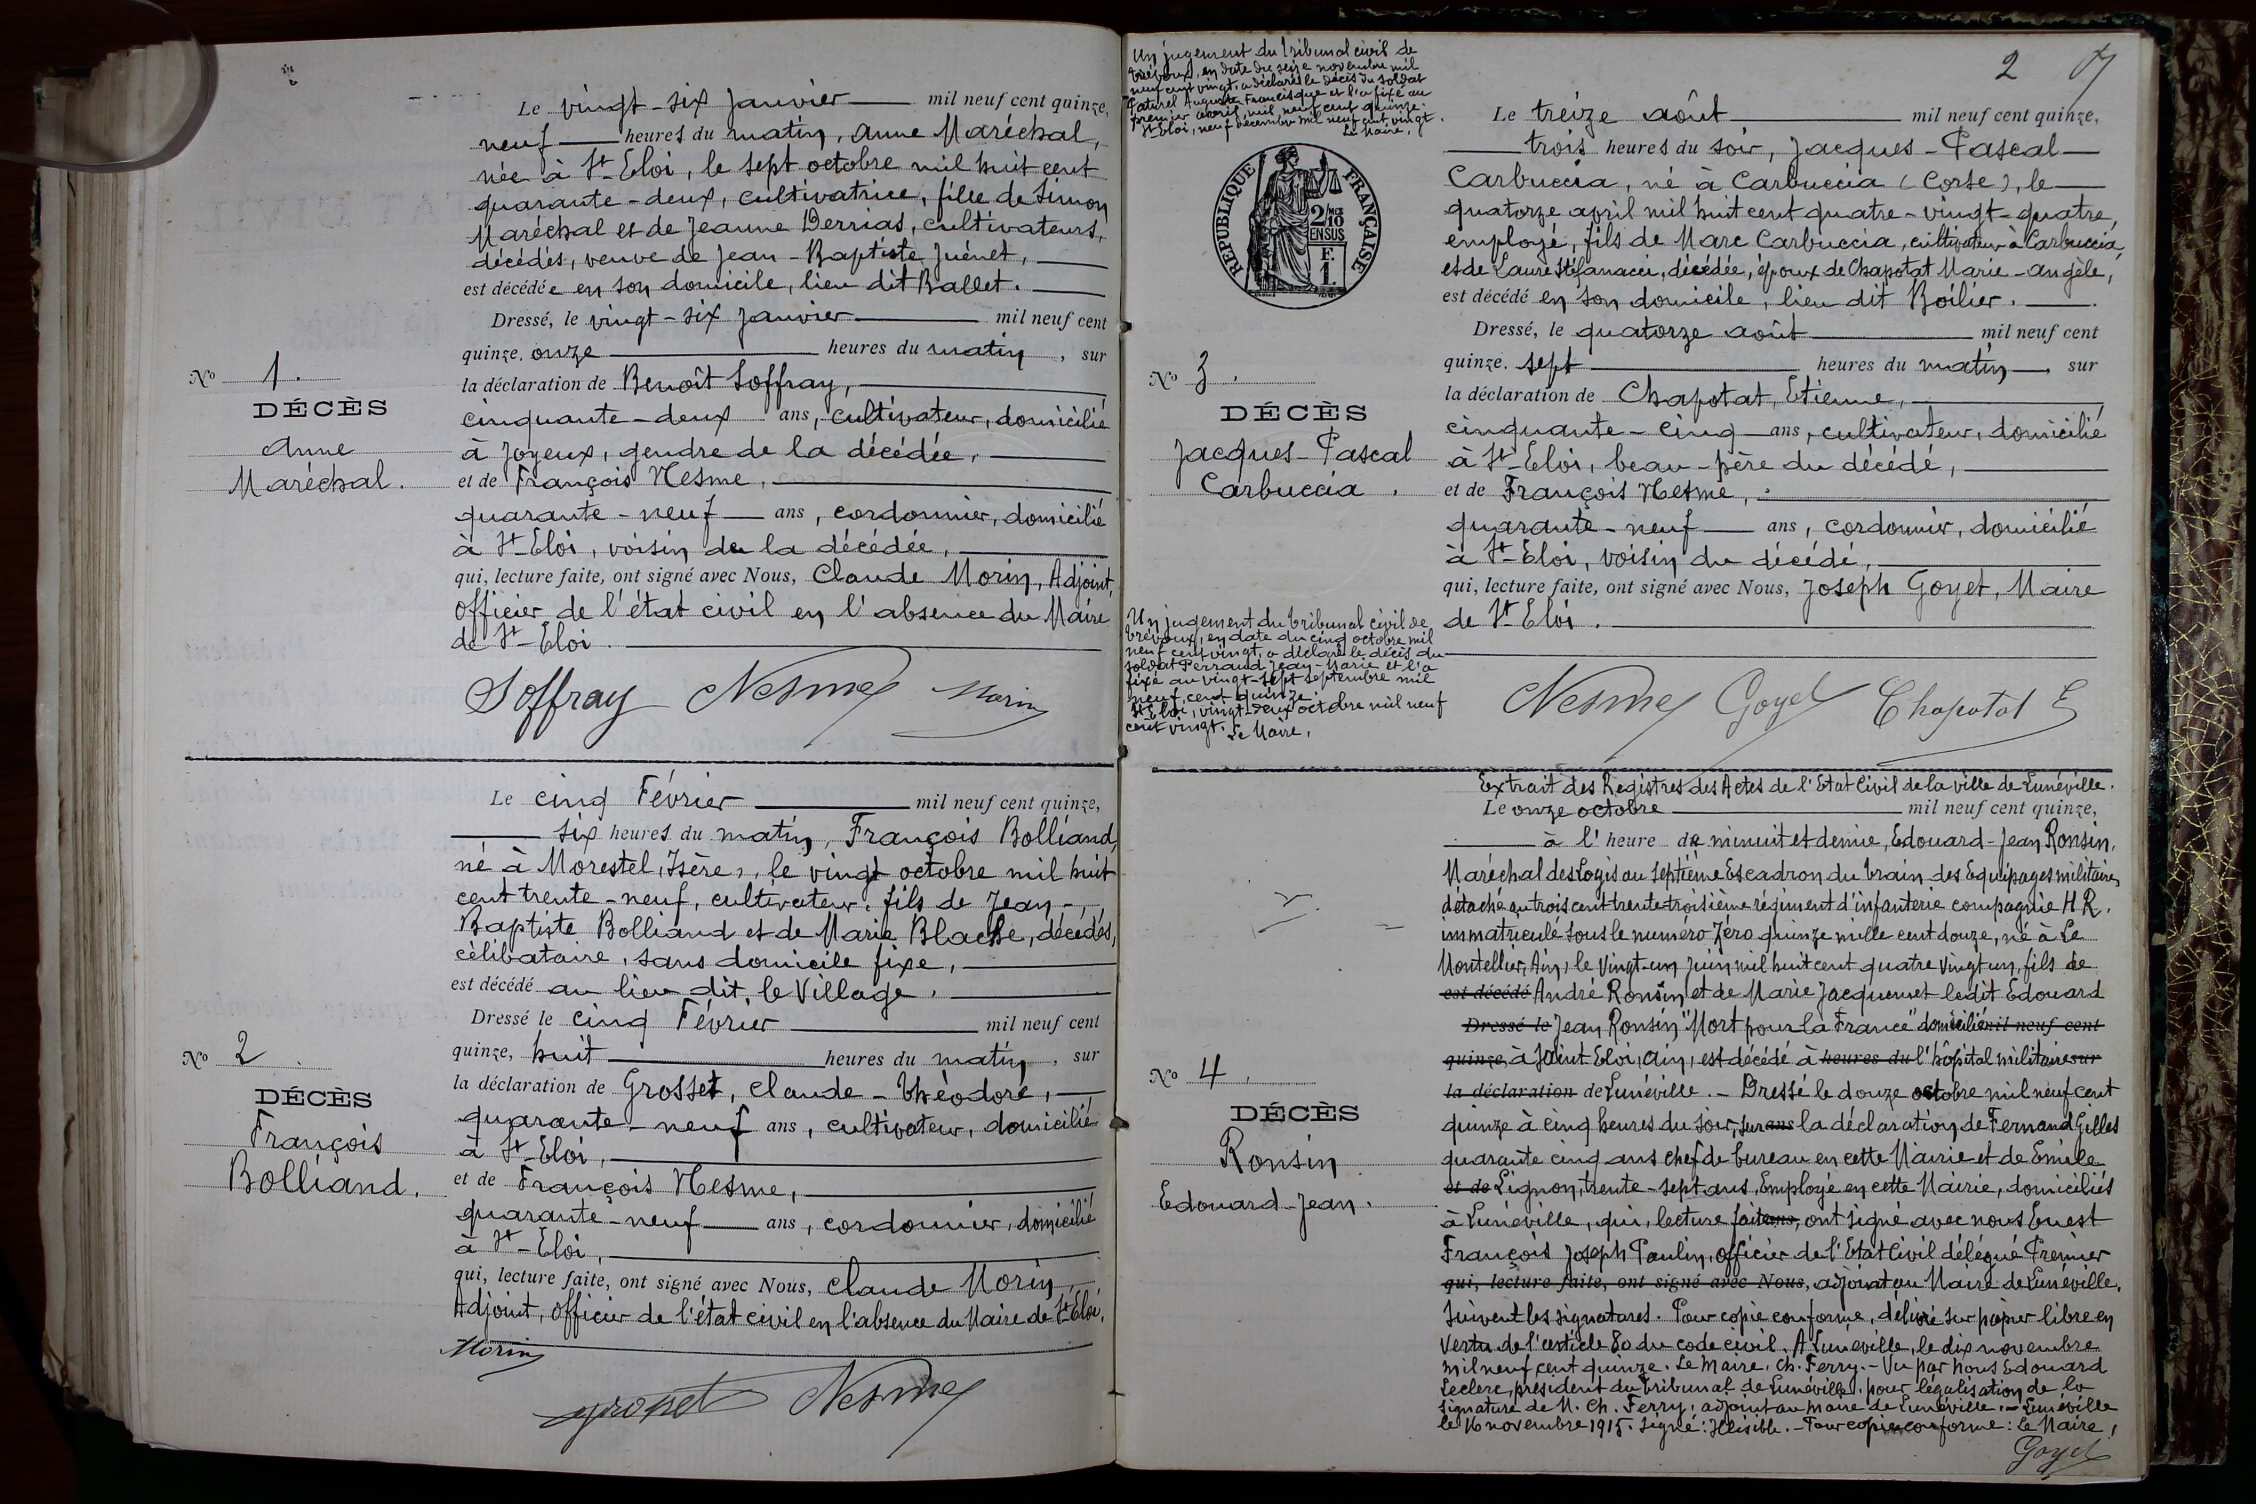 Le vingt-six Janvier mil neuf cent quinze,
neuf heures du matin, Anne Maréchal,
née à St-Eloi, le sept octobre mil huit cent
quarante-deux, cultivatrice, fille de Simon
Maréchal et de Jeanne Derrias, cultivateurs,
décédés, veuve de Jean-Baptiste Juénet,
est décédée en son domicile, lieu dit Ballet.
Dressé, le vingt-six Janvier mil neuf cent
quinze, onze heures du matin, sur
la déclaration de Benoît Soffray,
cinquante-deux ans, cultivateur, domicilié
à Joyeux, gendre de la décédée,
et de François Nesme,
quarante-neuf ans, cordonnier, domicilié
à St-Eloi, voisin de la décédée,
qui, lecture faite, ont signé avec Nous, Claude Morin, Adjoint,
Officier de l'état civil en l'absence du Maire
de St-Eloi.
Soffray Nesme Morin
No 1.
DÉCÈS
Anne
Maréchal.
Le cinq Février mil neuf cent quinze,
six heures du matin, François Bolliand,
né à Morestel, Isère, le vingt octobre mil huit
cent trente-neuf, cultivateur, fils de Jean-
Baptiste Bolliand et de Marie Blache, décédés,
célibataire, sans domicile fixe,
est décédé au lieu dit, le Village.
Dressé le cinq Février mil neuf cent
quinze, huit heures du matin, sur
la déclaration de Grosset, Claude-Théodore,
quarante-neuf ans, cultivateur, domicilié
à St-Eloi,
et de François Nesme,
quarante-neuf ans, cordonnier, domicilié
à St-Eloi,
qui, lecture faite, ont signé avec Nous, Claude Morin,
Adjoint, Officier de l'état civil en l'absence du Maire de St-Eloi.
Morin
Grosset Nesme
No 2.
DÉCÈS
François
Bolliand.
Un jugement du Tribunal civil de
Trévoux, en date du seize novembre mil
neuf cent vingt, a déclaré le décès du soldat
Paturel Auguste Francisque et l'a fixé au
premier avril, mil neuf cent quinze.
St Eloi, neuf décembre mil neuf cent vingt.
Le Maire,
RÉPUBLIQUE FRANÇAISE
2/10 MES
EN SUS
F.
1.
2
Le treize août mil neuf cent quinze,
trois heures du soir, Jacques-Pascal
Carbuccia, né à Carbuccia (Corse), le
quatorze avril mil huit cent quatre-vingt-quatre,
employé, fils de Marc Carbuccia, cultivateur à Carbuccia,
et de Laure Stéfanacci, décédée, époux de Chapotat Marie-Angèle,
est décédé en son domicile, lieu dit Boilier.
Dressé, le quatorze août mil neuf cent
quinze, sept heures du matin, sur
la déclaration de Chapotat, Etienne,
cinquante-cinq ans, cultivateur, domicilié
à St-Eloi, beau-père du décédé,
et de François Nesme,
quarante-neuf ans, cordonnier, domicilié
à St-Eloi, voisin du décédé,
qui, lecture faite, ont signé avec Nous, Joseph Goyet, Maire
de St Eloi.
Nesme Goyet Chapotat E
No 3.
DÉCÈS
Jacques-Pascal
Carbuccia.
Un jugement du tribunal civil de
Trévoux, en date du cinq octobre mil
neuf cent vingt, a déclaré le décès du
soldat Perraud Jean-Marie et l'a
fixé au vingt-sept septembre mil
neuf cent quinze.
St Eloi, vingt-deux octobre mil neuf
cent vingt. Le Maire,
Extrait des Registres des Actes de l'Etat Civil de la ville de Lunéville.
Le onze octobre mil neuf cent quinze,
à l'heure de minuit et demie, Edouard-Jean Ronsin,
Maréchal des Logis au Septième Escadron du train des Equipages militaires
détaché au trois cent trente-troisième régiment d'infanterie compagnie H R,
immatriculé sous le numéro zéro quinze mille cent douze, né à Le
Montellier, Ain, le vingt-un Juin mil huit cent quatre vingt un, fils de
est décédé André Ronsin et de Marie Jacquemet ledit Edouard
Dressé le Jean Ronsin "Mort pour la France" domicilié mil neuf cent
quinze, à Saint Eloi, Ain, est décédé à heures du l'hôpital militaire sur
la déclaration de Lunéville.- Dressé le douze octobre mil neuf cent
quinze à cinq heures du soir, sur ans la déclaration de Fernand Gilles
quarante cinq ans chef de bureau en cette Mairie et de Emile
et de Lignon, trente-sept ans, Employé en cette Mairie, domiciliés
à Lunéville, qui, lecture faite ans, ont signé avec nous Guest
François Joseph Paulin, officier de l'Etat Civil délégué Premier
qui, lecture faite, ont signé avec Nous, adjoint au Maire de Lunéville.
Suivent les signatures. Pour copie conforme, délivré sur papier libre en
vertu de l'article 80 du code civil. A Lunéville, le dix novembre
mil neuf cent quinze. Le Maire, Ch. Ferry.- Vu par nous Edouard
Leclerc, président du tribunal de Lunéville, pour légalisation de la
signature de M. Ch. Ferry, adjoint au maire de Lunéville.- Lunéville
le 16 novembre 1915. Signé: Illisible.- Pour copie conforme: Le Maire,
Goyet
No 4.
DÉCÈS
Ronsin
Edouard-Jean.